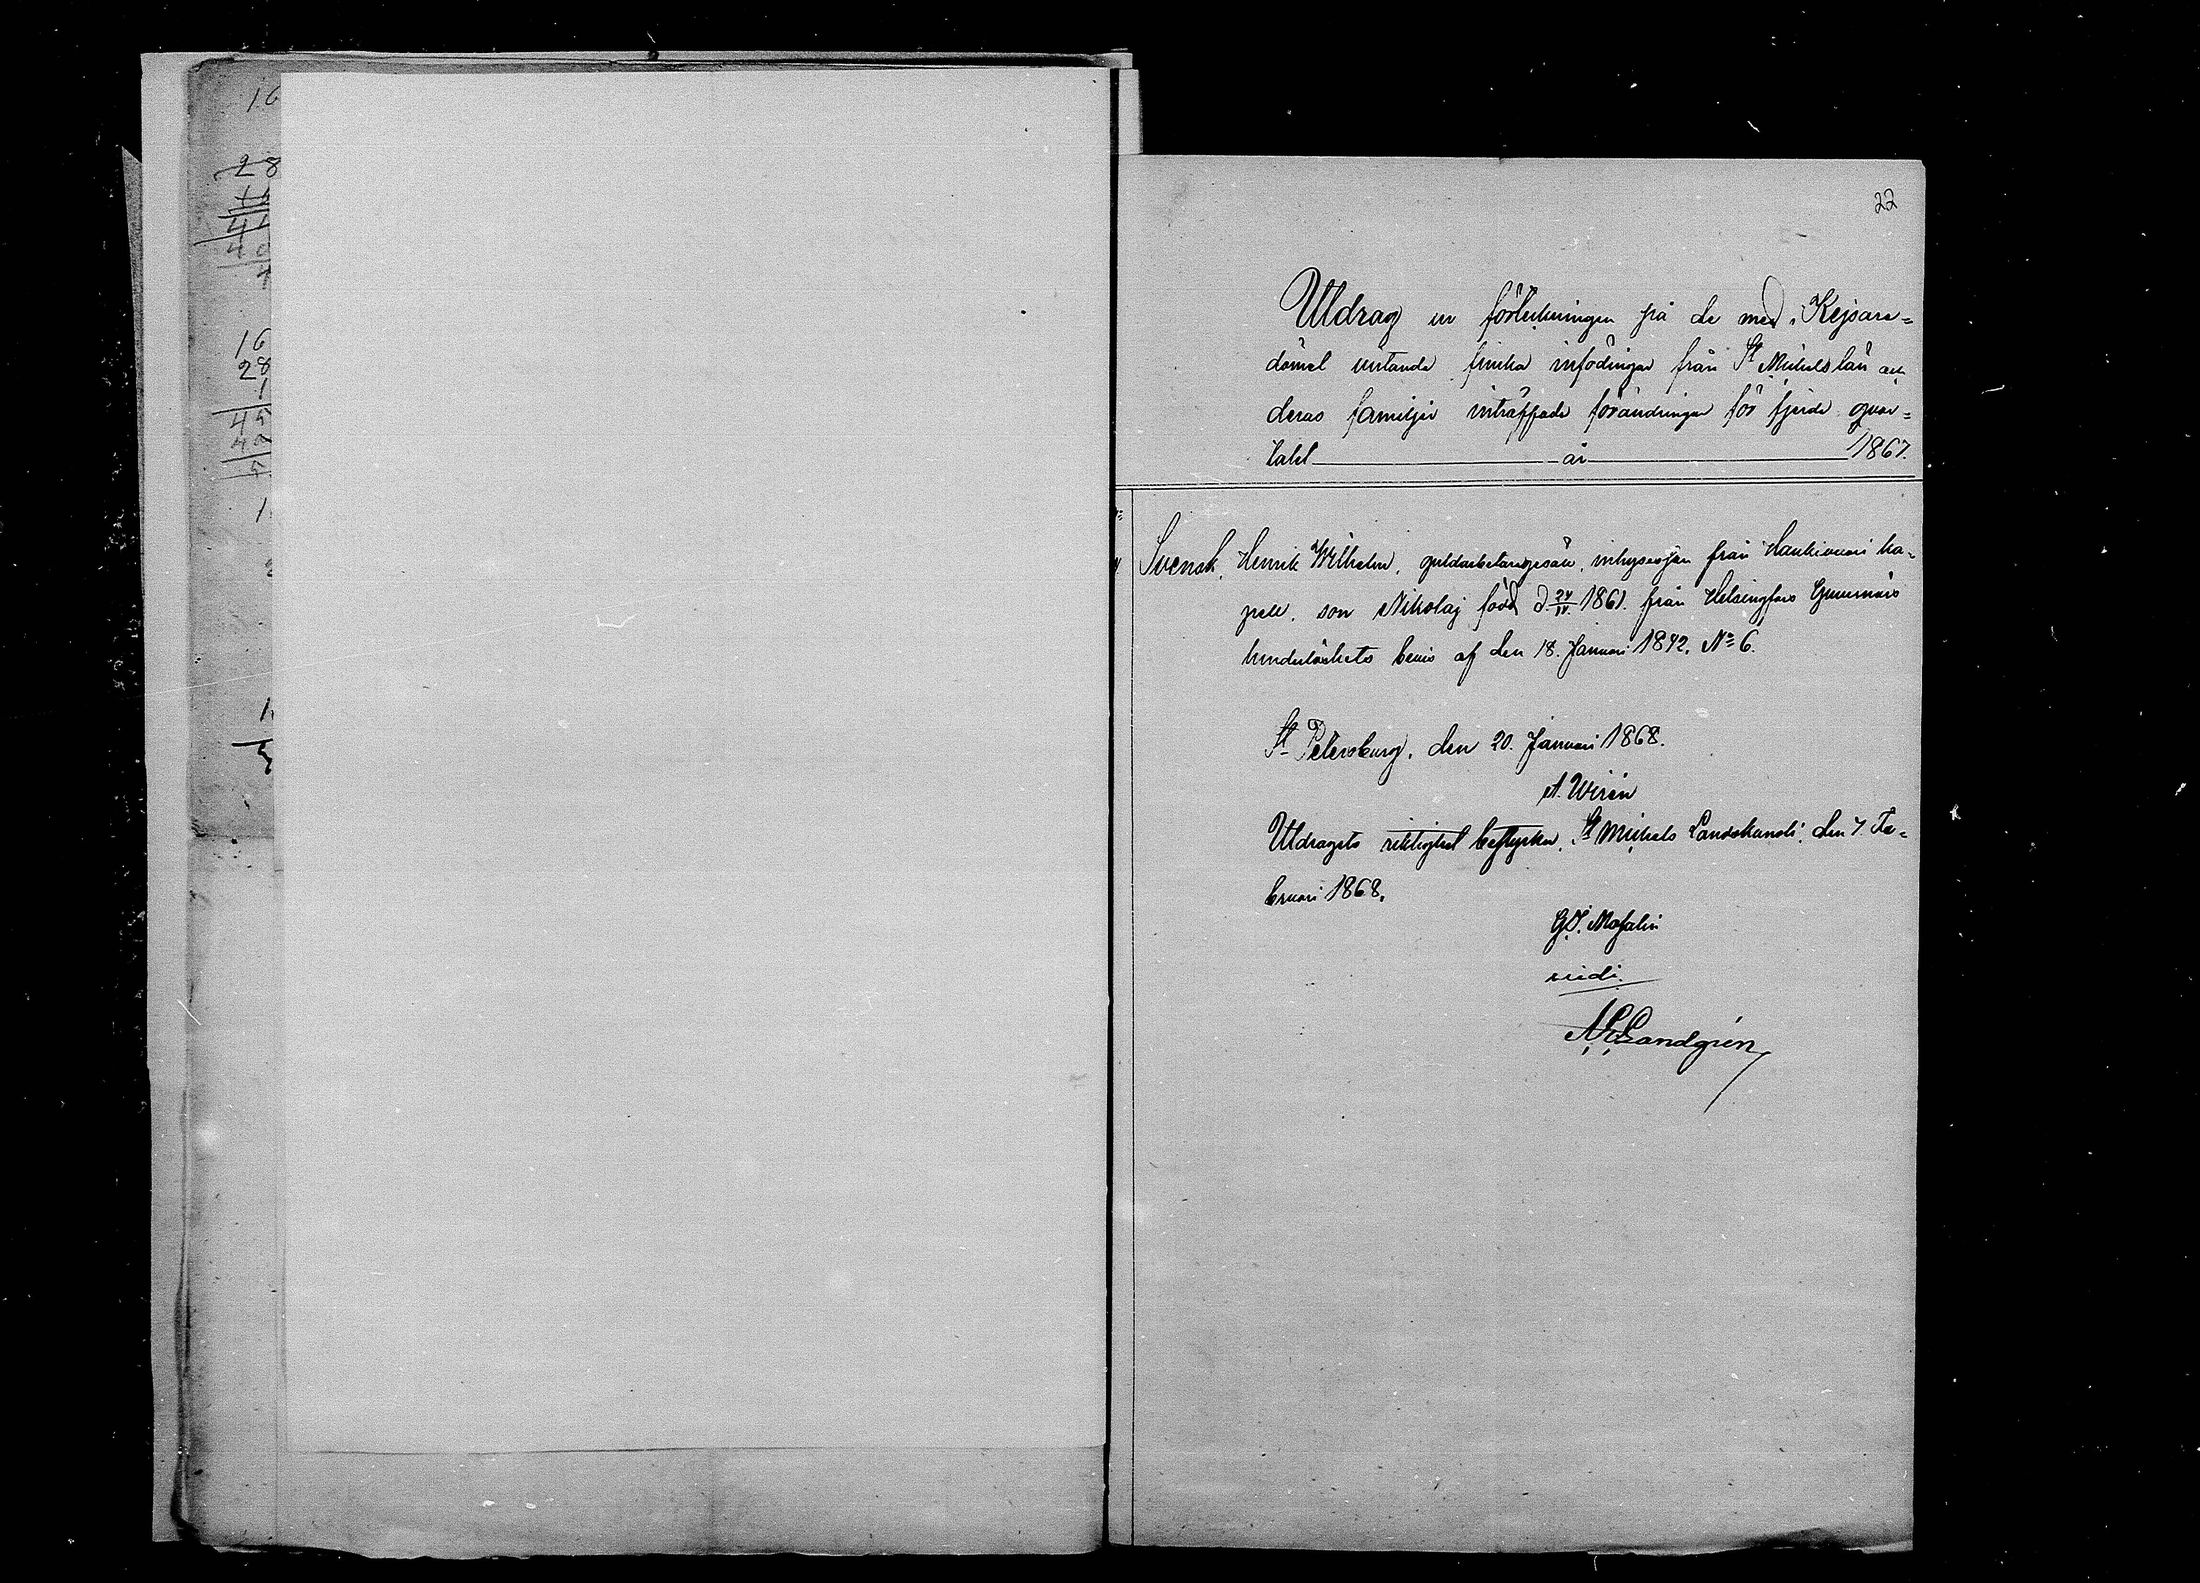 22
Utdrag ur förteckningen på de med i Kejsare=
dömet vistande finska infödingar från St Michels län och
deras familjer inträffade förändringar för fjerde qvar=
talet år 1867.
Svensk, Henrik Wilhelm, guldarbetaregesäll, inhysesson från Haukivuori ka=
pell, son Nikolaj född d. 24/IV 1861. från Helsingfors Guvernörs
hinderlöshets bevis af den 18. Januari 1842. No 6.
St Petersburg, den 20. Januari 1868.
A. Wirén
Utdragets riktighet bestyrker, St Michels Landskansli, den 7. Fe=
bruari 1868.
vidi.
16
28
16
28
1
45